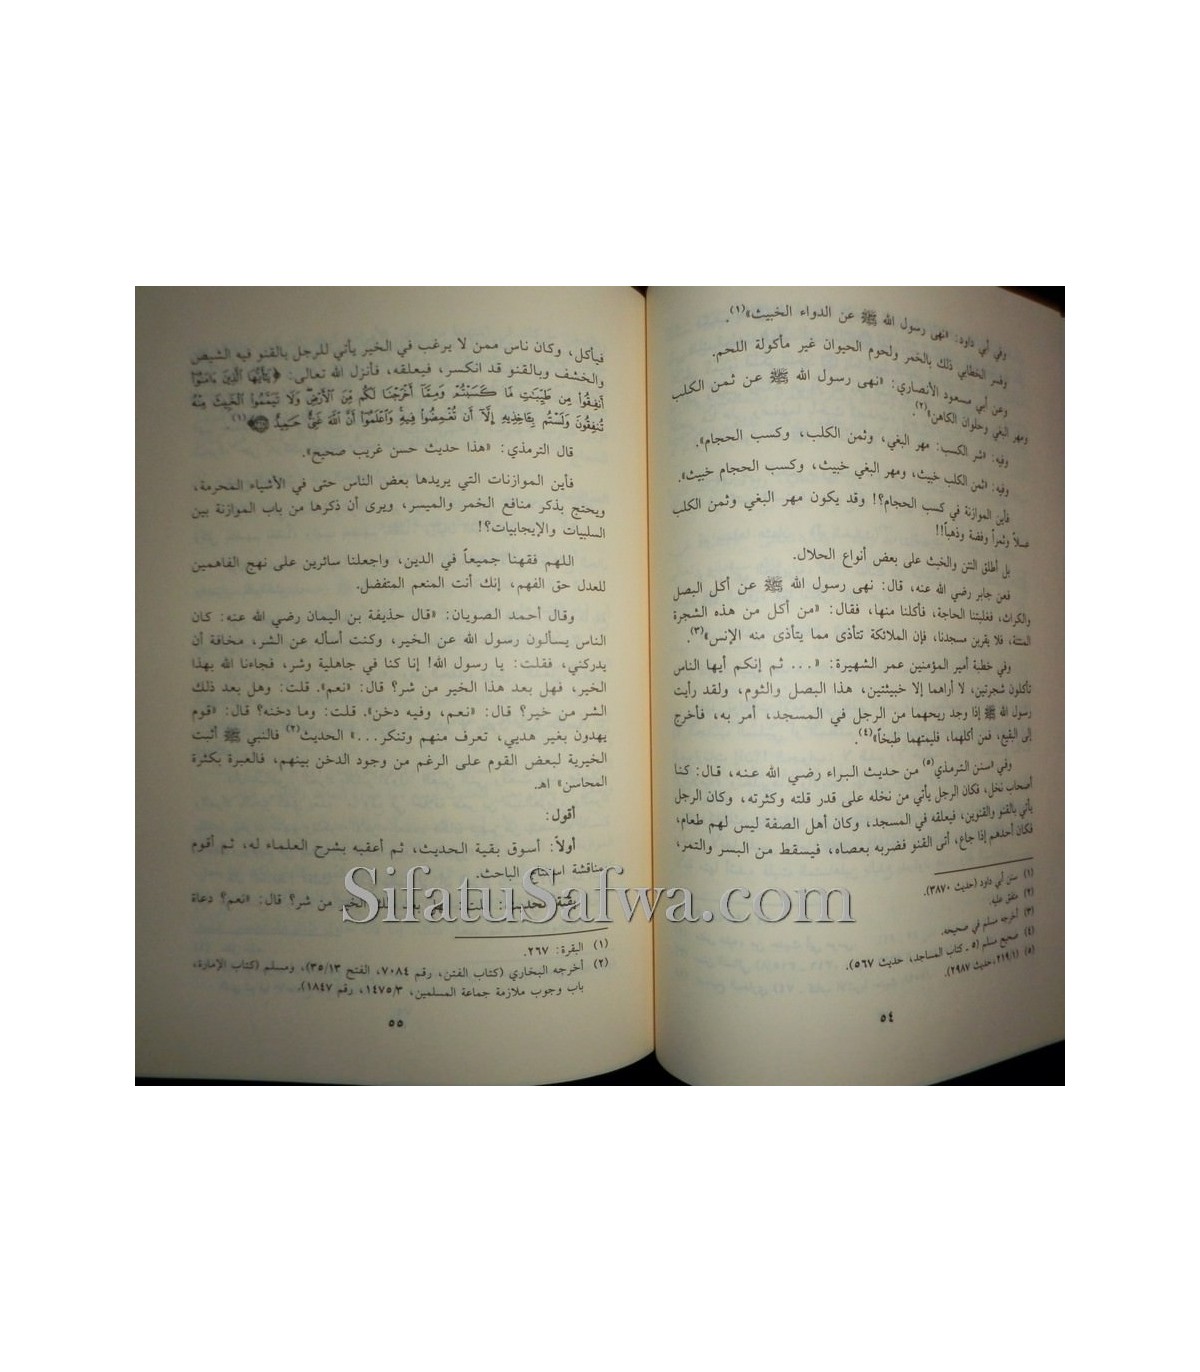 وفي أبي داود: «نهى رسول الله ﷺ عن الدواء الخبيث»(١).
وفسر الخطابي ذلك بالخمر ولحوم الحيوان غير مأكولة اللحم.
وعن أبي مسعود الأنصاري: «نهى رسول الله ﷺ عن ثمن الكلب
ومهر البغي وحلوان الكاهن»(٢).
وفيه: «شر الكسب: مهر البغي، وثمن الكلب، وكسب الحجام».
وفيه: «ثمن الكلب خبيث، ومهر البغي خبيث، وكسب الحجام خبيث».
فأين الموازنة في كسب الحجام؟! وقد يكون مهر البغي وثمن الكلب
عسلاً وثمراً وفضة وذهباً!!
بل أطلق النتن والخبث على بعض أنواع الحلال.
فعن جابر رضي الله عنه، قال: نهى رسول الله ﷺ عن أكل البصل
والكراث، فغلبتنا الحاجة، فأكلنا منها، فقال: «من أكل من هذه الشجرة
المنتنة، فلا يقربن مسجدنا، فإن الملائكة تتأذى مما يتأذى منه الإنس»(٣).
وفي خطبة أمير المؤمنين عمر الشهيرة: «... ثم إنكم أيها الناس
تأكلون شجرتين، لا أراهما إلا خبيثتين، هذا البصل والثوم، ولقد رأيت
رسول الله ﷺ إذا وجد ريحهما من الرجل في المسجد، أمر به، فأخرج
إلى البقيع، فمن أكلهما، فليمتهما طبخاً»(٤).
وفي «سنن الترمذي»(٥) من حديث البراء رضي الله عنه، قال: كنا
أصحاب نخل، فكان الرجل يأتي من نخله على قدر قلته وكثرته، وكان الرجل
يأتي بالقنو والقنوين، فيعلقه في المسجد، وكان أهل الصفة ليس لهم طعام،
فكان أحدهم إذا جاع، أتى القنو فضربه بعصاه، فيسقط من البسر والتمر،
(١) سنن أبي داود (حديث ٣٨٧٠).
(٢) متفق عليه.
(٣) أخرجه مسلم في صحيحه.
(٤) صحيح مسلم (٥ ـ كتاب المساجد، حديث ٥٦٧).
(٥) (٢١٩/١، حديث ٢٩٨٧).
٥٤
فيأكل، وكان ناس ممن لا يرغب في الخير يأتي للرجل بالقنو فيه الشيص
والخشف وبالقنو قد انكسر، فيعلقه، فأنزل الله تعالى: ﴿يَٰٓأَيُّهَا ٱلَّذِينَ ءَامَنُوٓا۟
أَنفِقُوا۟ مِن طَيِّبَٰتِ مَا كَسَبْتُمْ وَمِمَّآ أَخْرَجْنَا لَكُم مِّنَ ٱلْأَرْضِ وَلَا تَيَمَّمُوا۟ ٱلْخَبِيثَ مِنْهُ
تُنفِقُونَ وَلَسْتُم بِـَٔاخِذِيهِ إِلَّآ أَن تُغْمِضُوا۟ فِيهِ وَٱعْلَمُوٓا۟ أَنَّ ٱللَّهَ غَنِىٌّ حَمِيدٌ﴾(١)
قال الترمذي: «هذا حديث حسن غريب صحيح».
فأين الموازنات التي يريدها بعض الناس حتى في الأشياء المحرمة،
ويحتج بذكر منافع الخمر والميسر، ويرى أن ذكرها من باب الموازنة بين
السلبيات والإيجابيات؟!
اللهم فقهنا جميعاً في الدين، واجعلنا سائرين على نهج الفاهمين
للعدل حق الفهم، إنك أنت المنعم المتفضل.
وقال أحمد الصويان: «قال حذيفة بن اليمان رضي الله عنه: كان
الناس يسألون رسول الله عن الخير، وكنت أسأله عن الشر، مخافة أن
يدركني، فقلت: يا رسول الله! إنا كنا في جاهلية وشر، فجاءنا الله بهذا
الخير، فهل بعد هذا الخير من شر؟ قال: «نعم». قلت: وهل بعد ذلك
الشر من خير؟ قال: «نعم، وفيه دخن». قلت: وما دخنه؟ قال: «قوم
يهدون بغير هديي، تعرف منهم وتنكر...» الحديث(٢) فالنبي ﷺ أثبت
الخيرية لبعض القوم على الرغم من وجود الدخن بينهم، فالعبرة بكثرة
المحاسن» اهـ.
أقول:
أولاً: أسوق بقية الحديث، ثم أعقبه بشرح العلماء له، ثم أقوم
مناقشة استنتاج الباحث.
بقية الحديث: قلت: فهل بعد ذلك الخير من شر؟ قال: «نعم؟ دعاة
(١) البقرة: ٢٦٧.
(٢) أخرجه البخاري (كتاب الفتن، رقم ٧٠٨٤، الفتح ٣٥/١٣)، ومسلم (كتاب الإمارة،
باب وجوب ملازمة جماعة المسلمين، ١٤٧٥/٣، رقم ١٨٤٧).
٥٥
SifatuSafwa.com